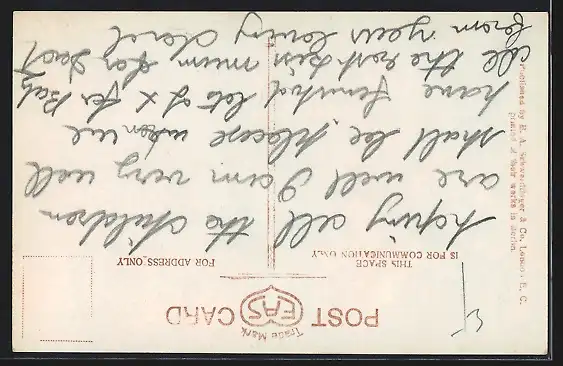 Trade Mark
EAS
POST CARD
THIS SPACE
IS FOR COMMUNICATION ONLY
FOR ADDRESS ONLY
hoping all the children
are well I am very well
shall be please when we
have finished lots of x for Baby
all the rest kiss mum for
from yours loving
Published by E. A. Schwerdtfeger & Co., London E. C.
printed at their works in Berlin.